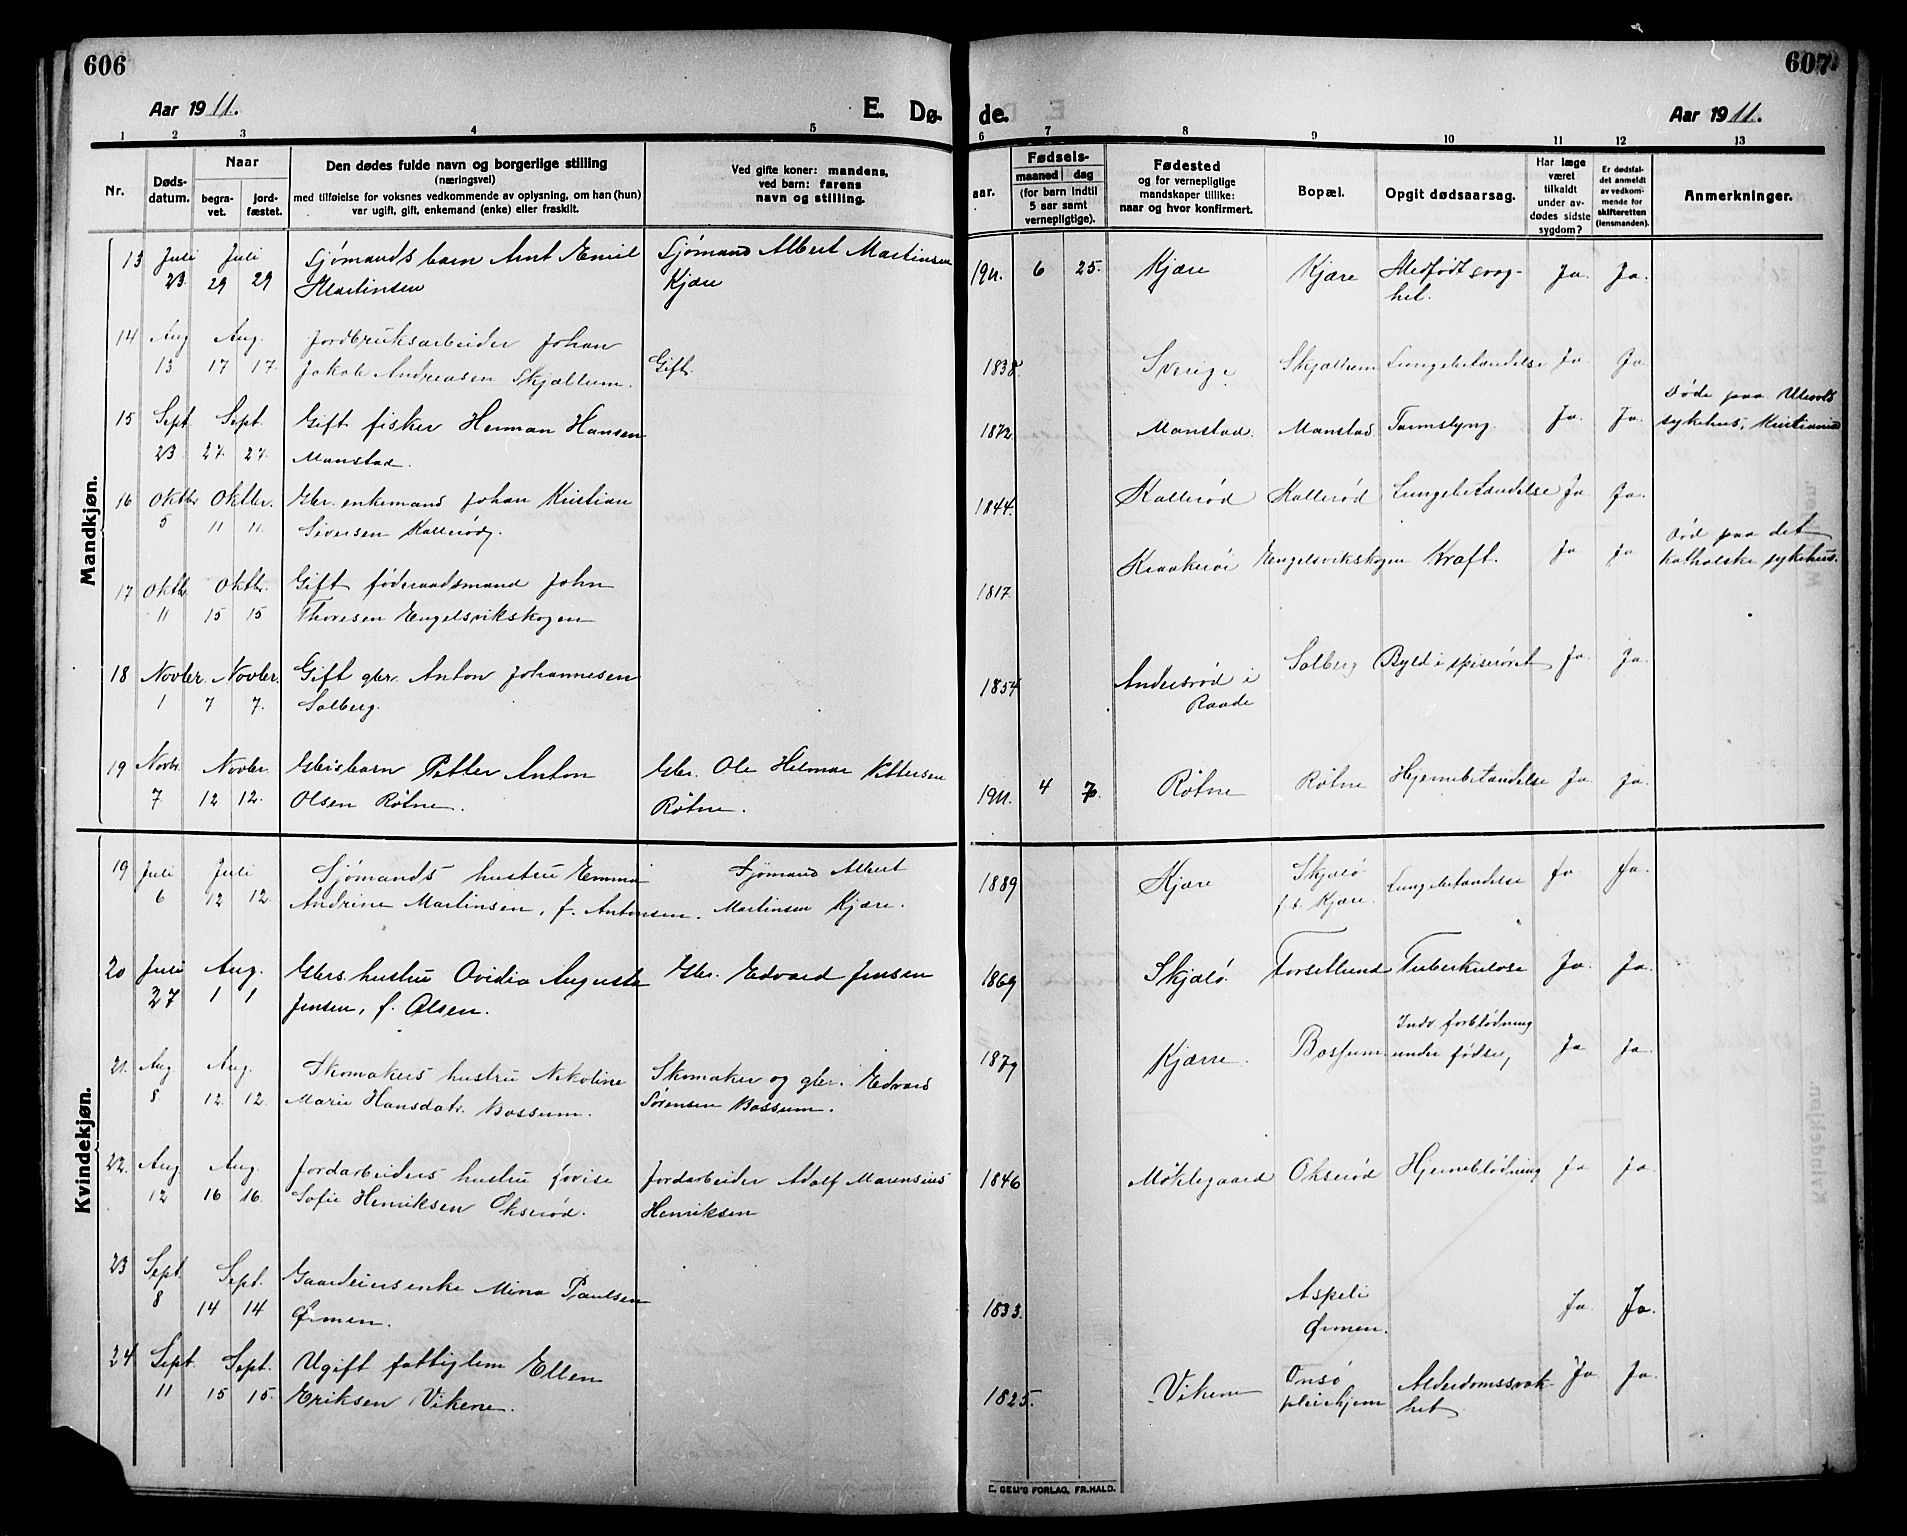 606
607
Aar 1911.
E. Dø-
de.
Aar 1911.
1 2 3 4 5
6 7 8 9 10 11 12 13
Nr.
Døds-
datum.
Naar
begra-
vet.
jord-
fæstet.
Den dødes fulde navn og borgerlige stilling
(næringsvei)
med tilføielse for voksnes vedkommende av oplysning, om han (hun)
var ugift, gift, enkemand (enke) eller fraskilt.
Ved gifte koner: mandens,
ved barn: farens
navn og stilling.
aar.
Fødsels-
maaned dag
(for barn indtil
5 aar samt
vernepligtige).
Fødested
og for vernepligtige
mandskaper tillike:
naar og hvor konfirmert.
Bopæl.
Opgit dødsaarsag.
Har læge
været
tilkaldt
under av-
dødes sidste
sygdom?
Er dødsfal-
det anmeldt
av vedkom-
mende for
skifteretten
(lensmanden).
Anmerkninger.
Mandkjøn.
13 Juli Juli Sjømands barn Arnt Emil Sjømand Albert Martinsen
23 29 29 Martinsen Kjære
1911. 6 25. Kjære Kjære Medfødt svag- Ja. Ja.
het.
14 Aug Aug. Jordbruksarbeider Johan
13 17 17. Jakob Andreasen Skjællum. Gift.
1838. Sverige Skjællum Lungebetændelse Ja Ja
15 Sept. Sept. Gift fisker Herman Hansen
23 27. 27. Manstad.
1872. Manstad. Manstad Tarmslyng. Ja. Ja.
Døde paa Ulevold
sykehus, Kristiania
16 Oktbr Oktbr. Gbr. enkemand Johan Kristian
5 11 11. Siversen Kallerød.
1844. Kallerød Kallerød Lungebetændelse Ja Ja.
17 Oktb. Oktbr. Gift føderaadsmand John
11 15 15 Thoresen Engelsvikskogen
1817. Kraakerøi Engelsvikskogen Kræft. Ja Ja
Død paa det
katholske sykehus.
18 Novber. Novber. Gift gbr. Anton Johannesen
1 7 7. Solberg.
1854 Andersrød i Solberg Byld i spiserøret Ja. Ja.
Raade
19 Novbr. Novber. Gbrs barn Petter Anton Gbr. Ole Hilmar Pettersen
7 12 12. Olsen Røtne. Røtne.
1911. 4 7. Røtne Røtne Hjernebetændelse Ja Ja.
Kvindekjøn.
19 Juli Juli Sjømands hustru Emma Sjømand Albert
6 12 12. Andrine Martinsen, f. Antonsen. Martinsen Kjære.
1889 Kjære Skjælø Lungebetændelse Ja Ja.
f.t. Kjære.
20 Juli Aug. Gbrs. hustru Ovidia Augusta Gbr. Edvard Jensen
27 1 1 Jensen, f. Olsen.
1869 Skjælø. Torsetlund Tuberkulose Ja. Ja.
21. Aug Aug. Skomakers hustru Nikoline Skomaker og gbr. Edvard
8 12. 12. Marie Hansdatr. Bossum. Sørensen Bossum.
1879 Kjære. Bossum Indv forblødning
under fødsel, Ja Ja.
22. Aug Aug. Jordarbeiders hustru Lovise Jordarbeider Adolf Marensius
12 16 16. Sofie Henriksen Okserød. Henriksen
1846 Møklegaard Okserød Hjerneblødning Ja Ja.
23 Sept. Sept. Gaardeiers enke Mina Paulsen
8 14 14 Ørmen.
1833. Aspeli Ja. Ja.
Ørmen.
24 Sept. Sept. Ugift fattiglem Ellen
11 15 15. Eriksen Vikene.
1825. Vikene Onsø Alderdomssvak- Ja. Ja.
pleiehjem het
E. SEM'S FORLAG, FR.HALD.